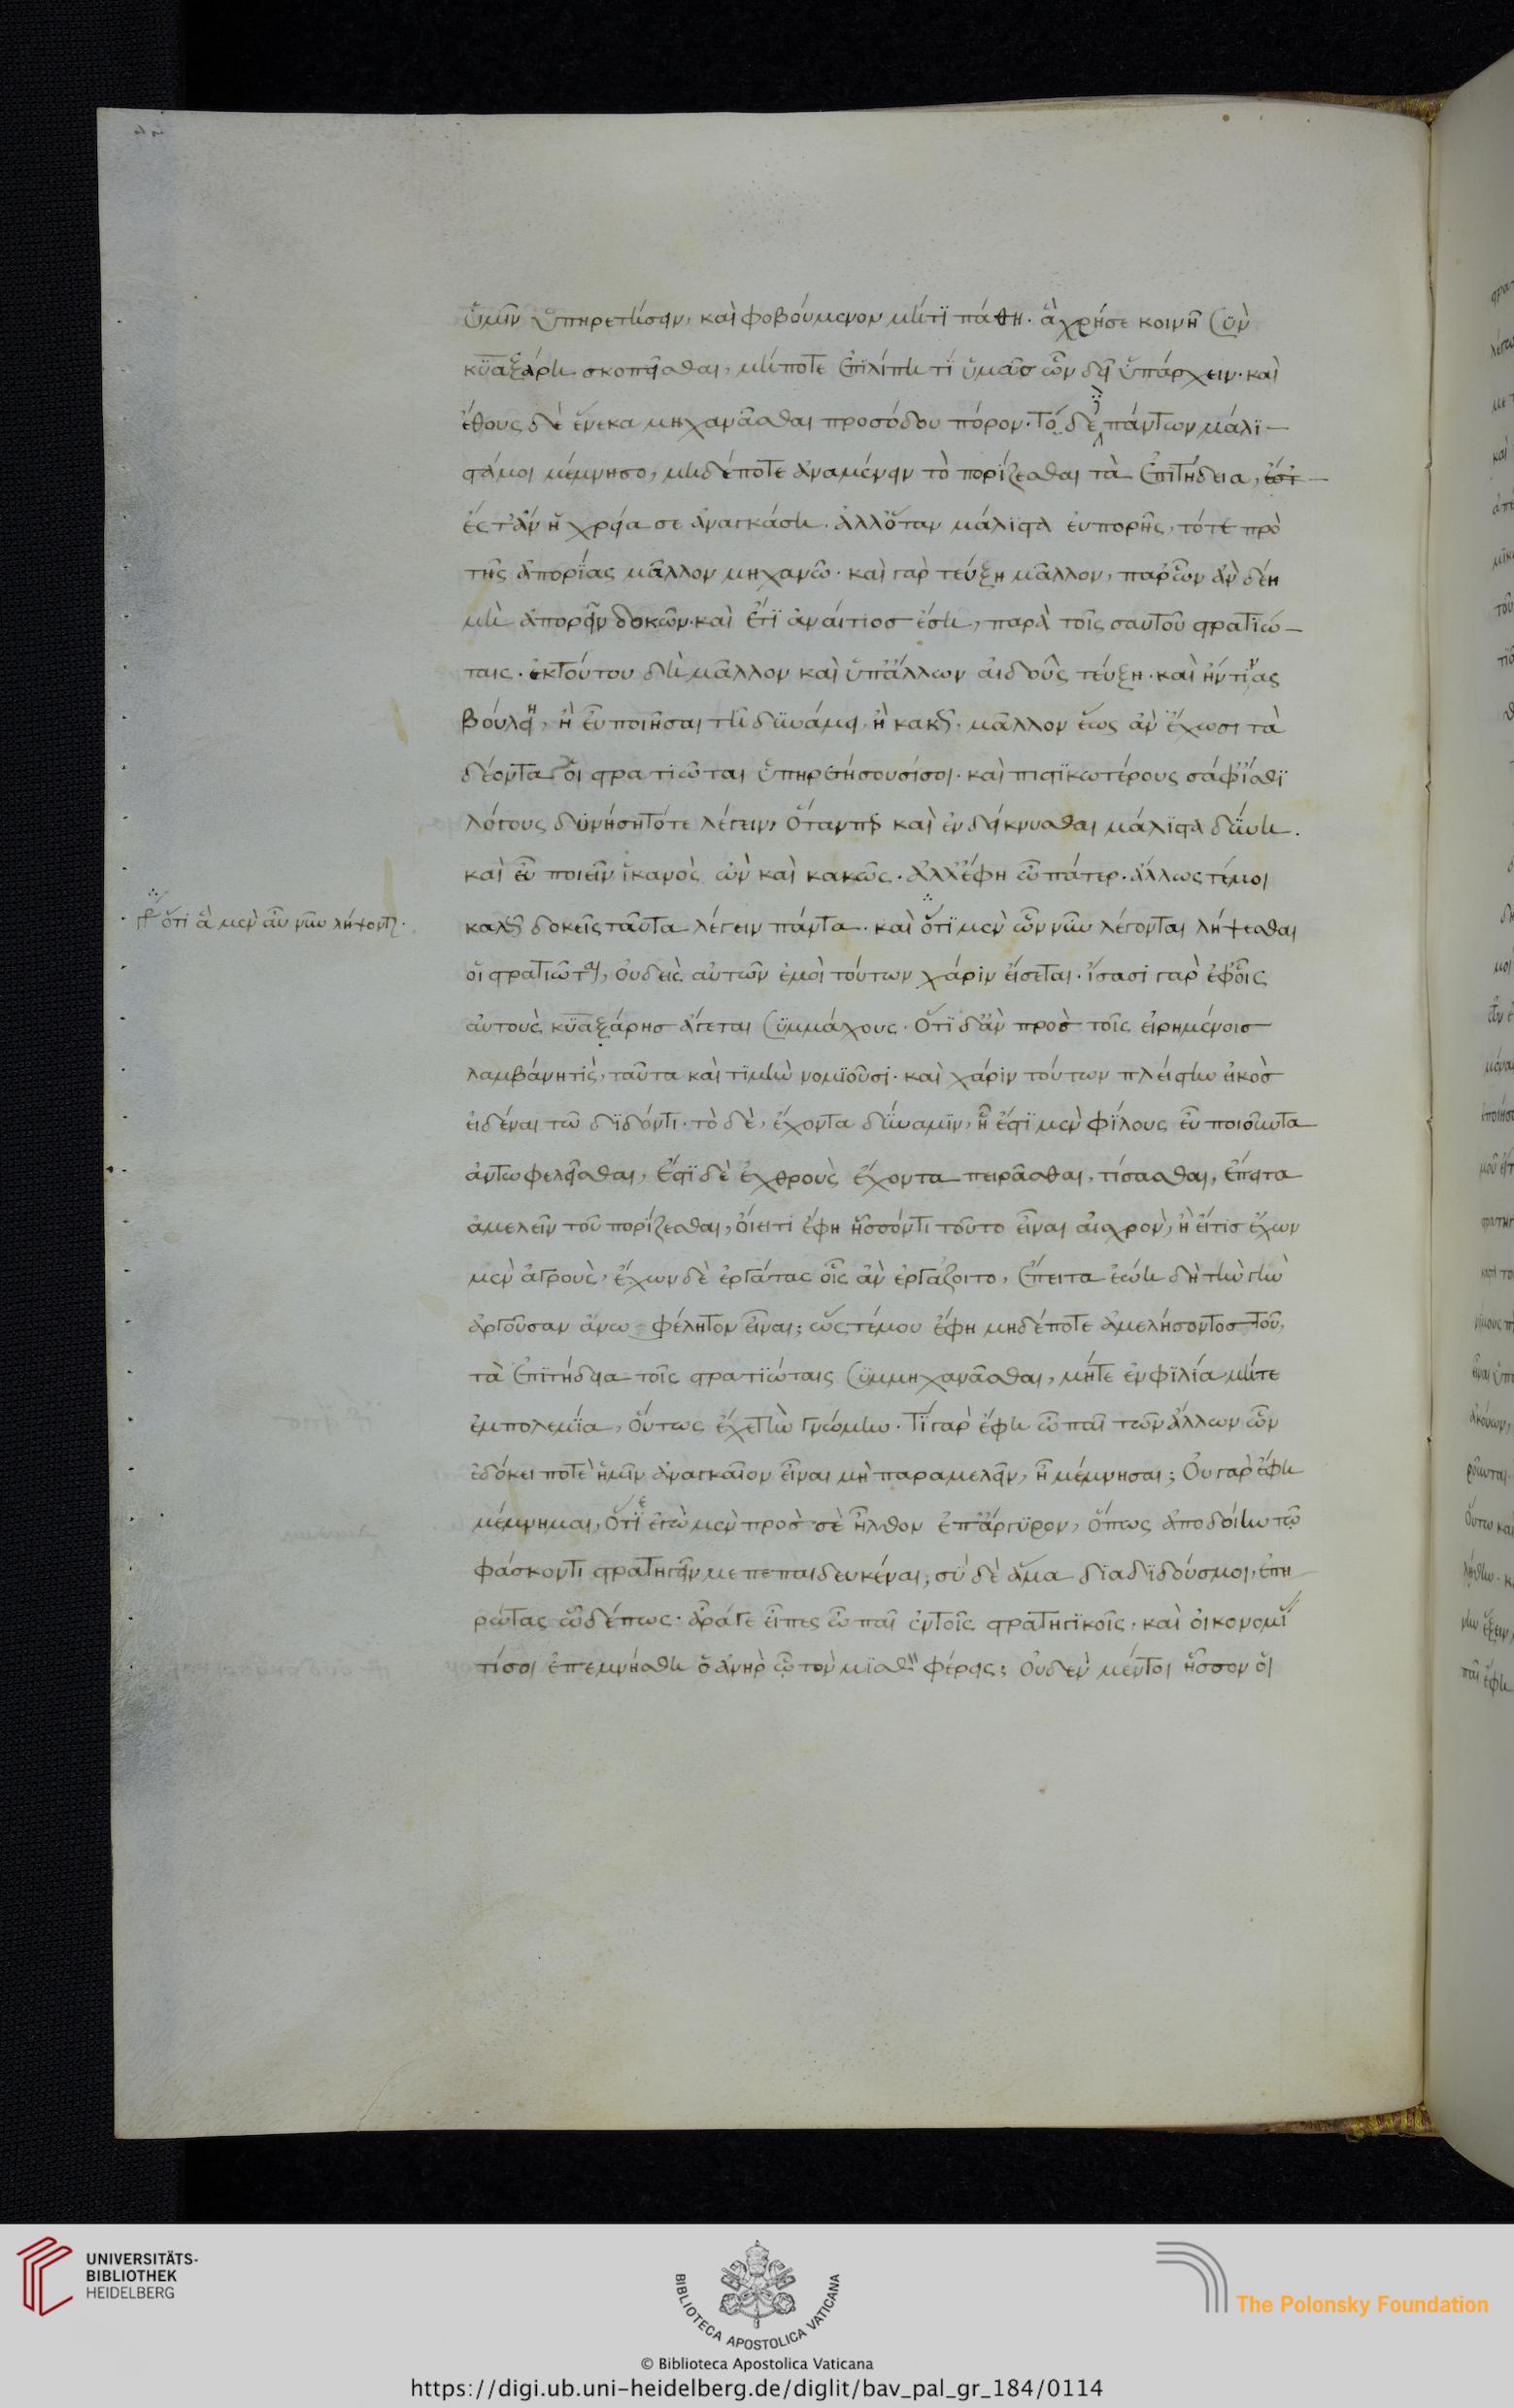 ὑμῖν ὑπηρετήσειν, καὶ φοβούμενον μή τι πάθη. ἃ χρή σε κοινῆ σὺν
κυαξάρη σκοπεῖσθαι, μήποτε ἐπιλίπη τί ὑμᾶς ὧν δεῖ ὑπάρχειν. καὶ
ἔθους δὲ ἕνεκα μηχανᾶσθαι προσόδου πόρον. τὸ δὲ πάντων μάλι-
στά μοι μέμνησο, μηδέποτε ἀναμένειν τὸ πορίζεσθαι τὰ ἐπιτήδεια,
ἔς τ' ἂν ἡ χρεία σε ἀναγκάση. ἀλλ' ὅταν μάλιστα εὐπορῆς, τότε πρὸ
τῆς ἀπορίας μᾶλλον μηχανῶ. καὶ γὰρ τεύξη μᾶλλον, παρ' ὧν ἂν δέη
μὴ ἀπορεῖν δοκῶν. καὶ ἔτι ἀναίτιος ἔση, παρὰ τοῖς σαυτοῦ στρατιώ-
ταις. ἐκ τούτου δὴ μᾶλλον καὶ ὑπ' ἄλλων αἰδοῦς τεύξη. καὶ ἤν τινας
βούλη, ἢ εὖ ποιῆσαι τῆ δυνάμει, ἢ κακῶς. μᾶλλον ἕως ἂν ἔχωσι τὰ
δέοντα οἱ στρατιῶται ὑπηρετήσουσί σοι. καὶ πιστικωτέρους σάφ' ἴσθι
λόγους δυνήση τότε λέγειν, ὅταν περ καὶ ἐνδείκνυσθαι μάλιστα δύνη.
καὶ εὖ ποιεῖν ἱκανὸς ὢν καὶ κακῶς. ἀλλ' ἔφη ὦ πάτερ. ἄλλως τέ μοι
καλῶς δοκεῖς ταῦτα λέγειν πάντα. καὶ ὅτι μὲν ὧν νῦν λέγονται λήψεσθαι
οἱ στρατιῶται, οὐδεὶς αὐτῶν ἐμοὶ τούτων χάριν εἴσεται. ἴσασι γὰρ ἐφ' οἷς
αὐτοὺς κυαξάρης ἄγεται συμμάχους. ὅτι δ' ἂν πρὸς τοῖς εἰρημένοις
λαμβάνη τίς, ταῦτα καὶ τιμὴν νομιοῦσι. καὶ χάριν τούτων πλείστην εἰκὸς
εἰδέναι τῶ διδόντι. τὸ δὲ, ἔχοντα δύναμιν, ἧ ἔστι μὲν φίλους εὖ ποιοῦντα
ἀντωφελεῖσθαι, ἔστι δὲ ἐχθροὺς ἔχοντα πειρᾶσθαι, τίσασθαι, ἔπειτα
ἀμελεῖν τοῦ πορίζεσθαι, οἴει τι ἔφη ἧσσόν τι τοῦτο εἶναι αἰσχρὸν, ἢ εἴ τις ἔχων
μὲν ἀγροὺς, ἔχων δὲ ἐργάτας οἷς ἂν ἐργάζοιτο, ἔπειτα ἐώη δὴ τὴν γῆν
ἀργοῦσαν ἀνωφέλητον εἶναι; ὥς γ' ἐμοῦ ἔφη μηδέποτε ἀμελήσοντος τοῦ,
τὰ ἐπιτήδεια τοῖς στρατιώταις συμμηχανᾶσθαι, μήτε ἐν φιλία μήτε
ἐμ πολεμία, οὕτως ἔχε τὴν γνώμην. τί γὰρ ἔφη ὦ παῖ τῶν ἄλλων ὧν
ἐδόκει ποτὲ ἡμῖν ἀναγκαῖον εἶναι μὴ παραμελεῖν, ἦ μέμνησαι; οὐ γὰρ ἔφη
μέμνημαι, ὅτε ἐγὼ μὲν πρὸς σὲ ἦλθον ἐπ' ἀργύριον, ὅπως ἀποδοίην τῶ
φάσκοντι στρατηγεῖν με πεπαιδευκέναι; σὺ δὲ ἅμα διαδιδούς μοι, ἐπη
ρώτας ὧδέ πως. ἆρά γε εἶπες ὦ παῖ ἐν τοῖς στρατηγικοῖς. καὶ οἰκονομί
τί σοι ἐπεμνήσθη ὁ ἀνὴρ ὧ τὸν μισθὸν φέρεις; οὐδὲν μέντοι ἧσσον οἱ
ὅτι ἃ μὲν ἂν νῦν λήψονται.
UNIVERSITÄTS-
BIBLIOTHEK
HEIDELBERG
BIBLIOTECA APOSTOLICA VATICANA
The Polonsky Foundation
© Biblioteca Apostolica Vaticana
https://digi.ub.uni-heidelberg.de/diglit/bav_pal_gr_184/0114